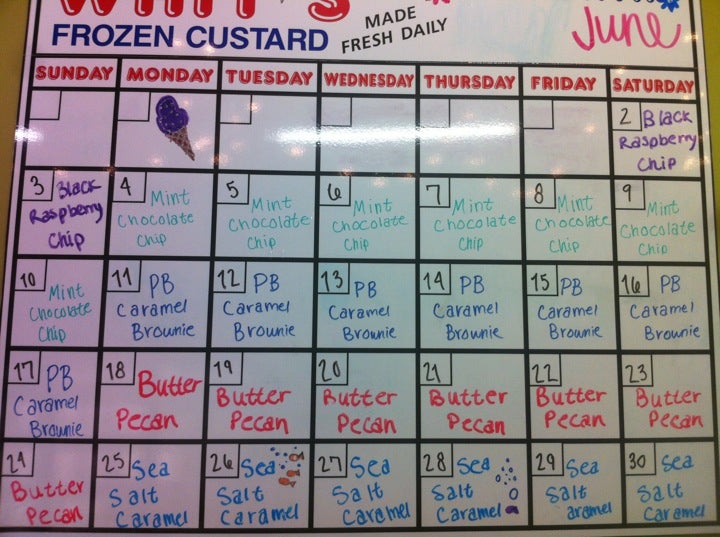 WHIT'S
FROZEN CUSTARD
MADE
FRESH DAILY
June
SUNDAY MONDAY TUESDAY WEDNESDAY THURSDAY FRIDAY SATURDAY
2 Black
Raspberry
Chip
3 Black
Raspberry
Chip
4 Mint
Chocolate
Chip
5 Mint
Chocolate
Chip
6 Mint
Chocolate
Chip
7 Mint
Chocolate
Chip
8 Mint
Chocolate
Chip
9 Mint
Chocolate
Chip
10 Mint
Chocolate
Chip
11 PB
Caramel
Brownie
12 PB
Caramel
Brownie
13 PB
Caramel
Brownie
14 PB
Caramel
Brownie
15 PB
Caramel
Brownie
16 PB
Caramel
Brownie
17 PB
Caramel
Brownie
18 Butter
Pecan
19
Butter
Pecan
20
Butter
Pecan
21
Butter
Pecan
22
Butter
Pecan
23
Butter
Pecan
24
Butter
Pecan
25 Sea
Salt
Caramel
26 Sea
Salt
Caramel
27 Sea
Salt
Caramel
28 Sea
Salt
Caramel
29 Sea
Salt
aramel
30 Sea
Salt
Caramel